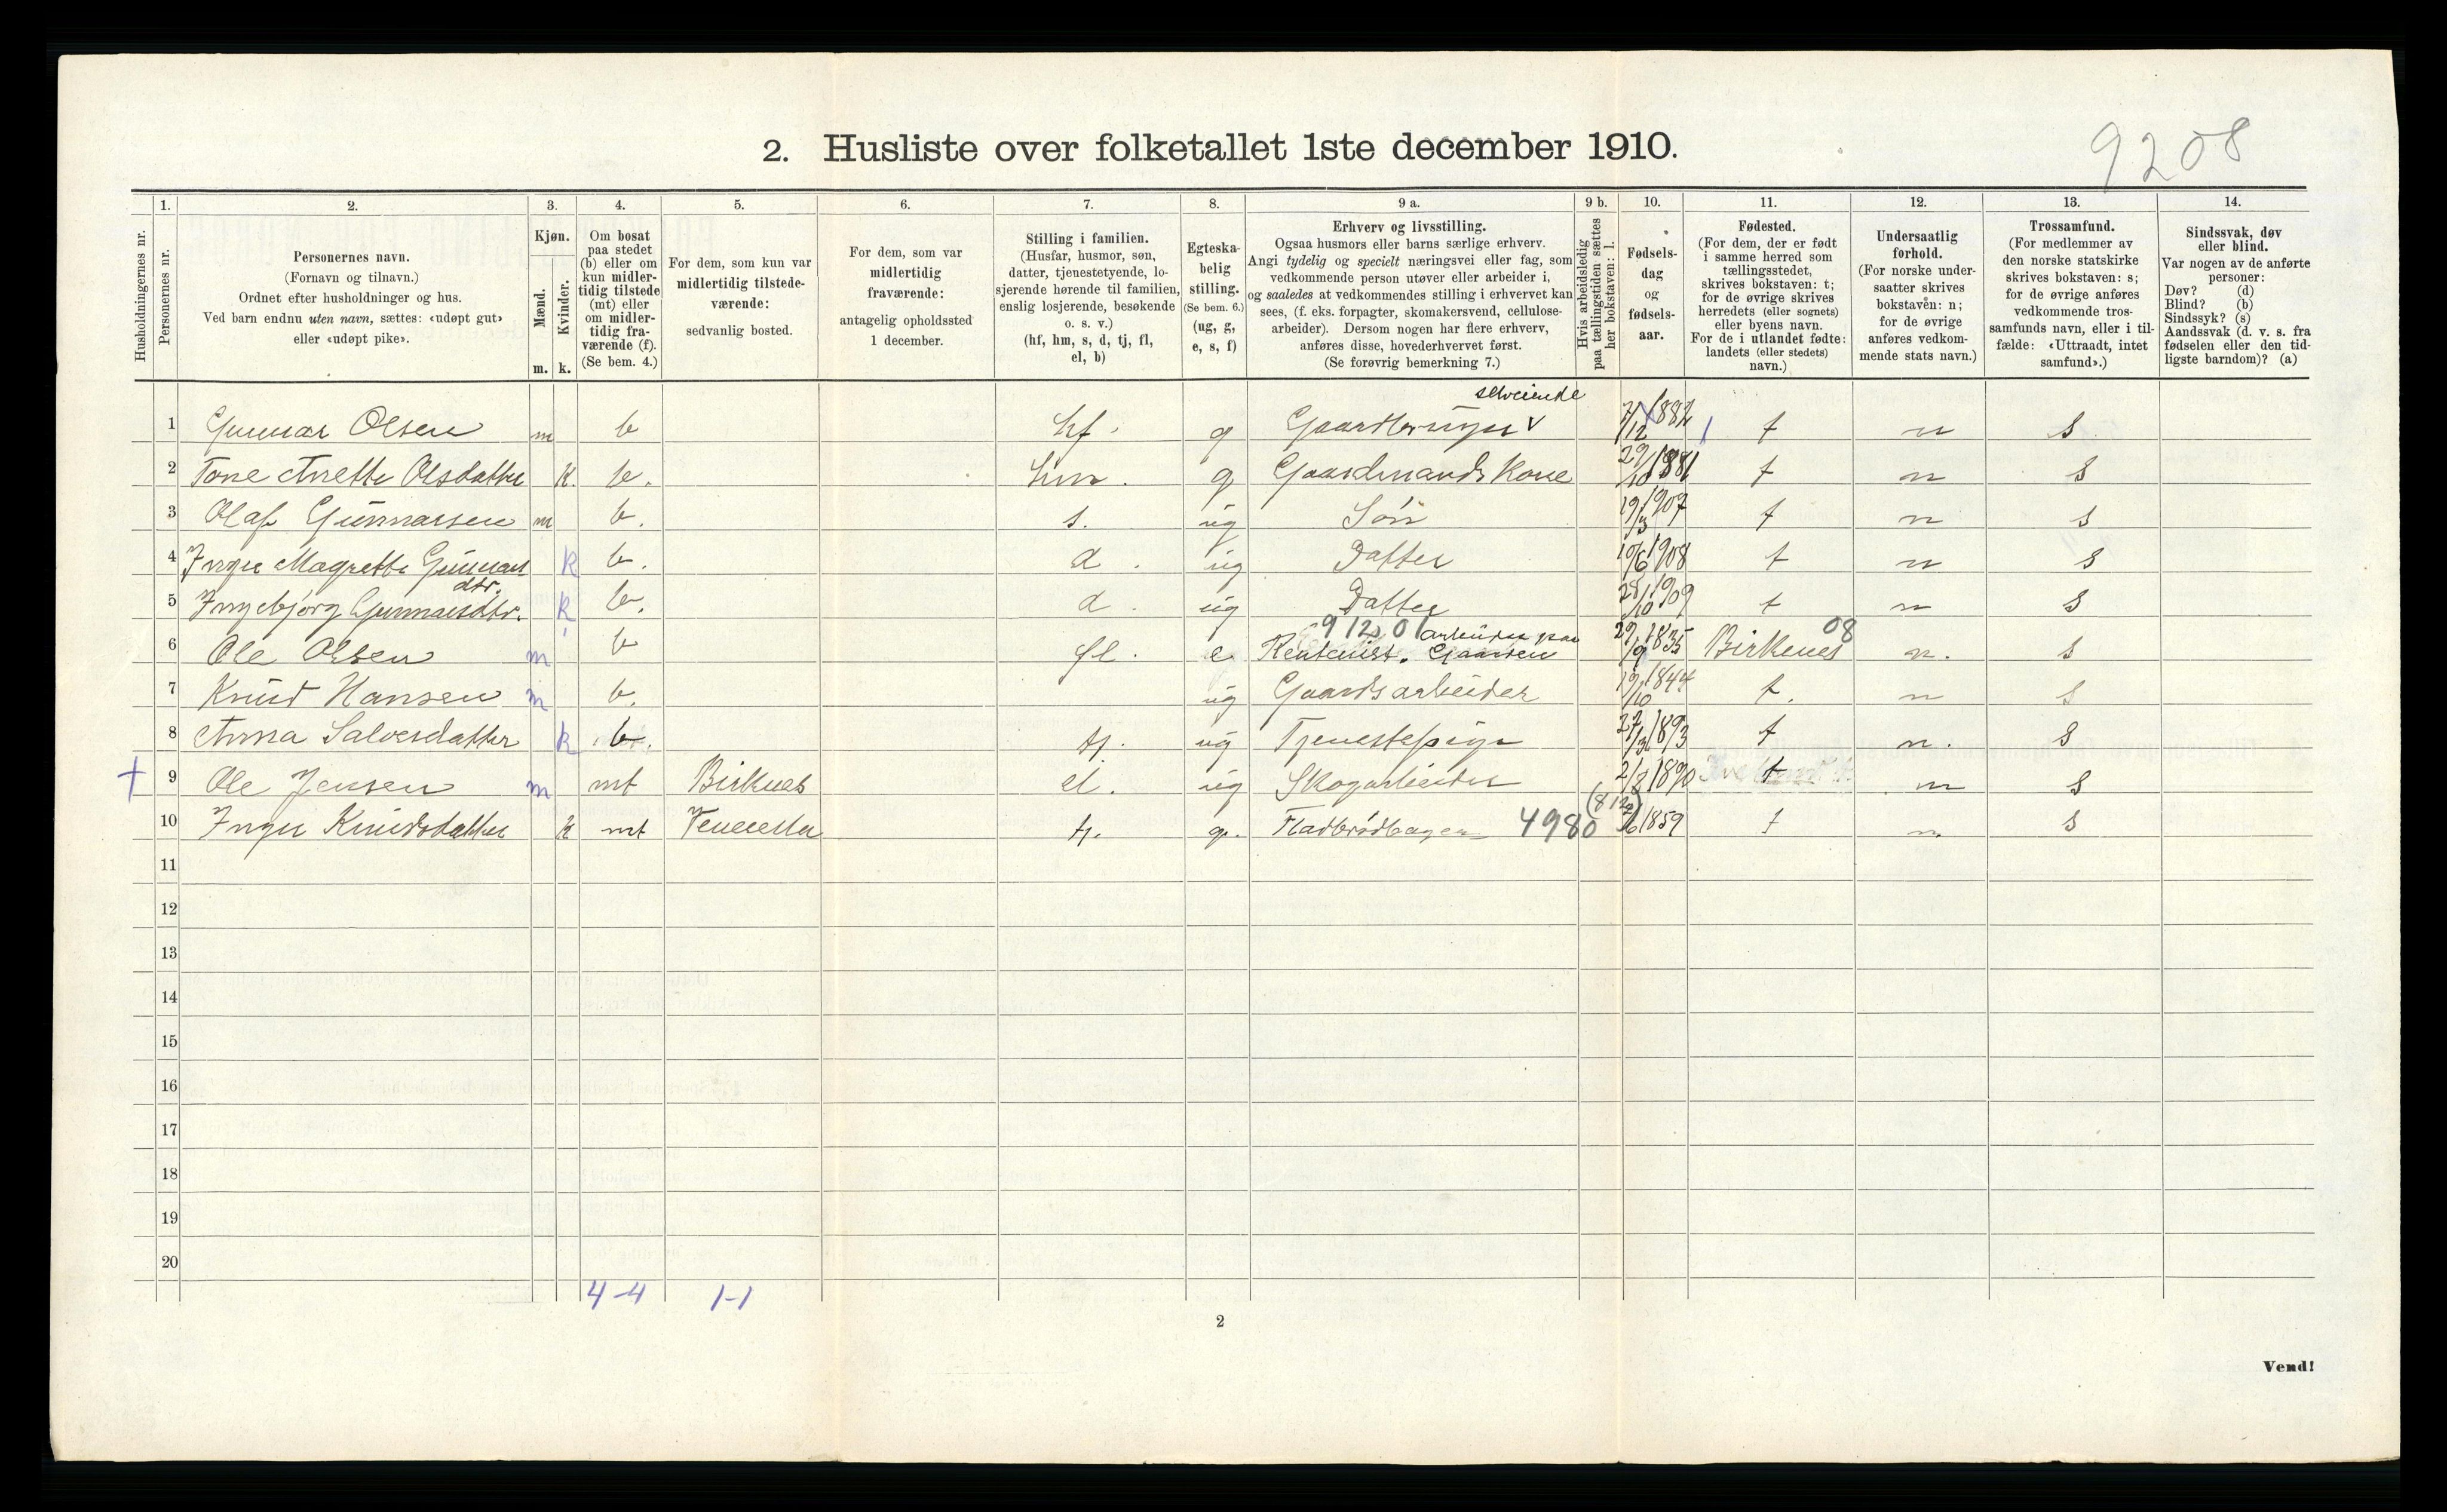 2. Husliste over folketallet 1ste december 1910.
9208
1. 2. 3. 4. 5. 6. 7. 8. 9 a. 9 b. 10. 11. 12. 13. 14.
Husholdningernes nr.
Personernes nr.
Personernes navn.
(Fornavn og tilnavn.)
Ordnet efter husholdninger og hus.
Ved barn endnu uten navn, sættes: «udøpt gut»
eller «udøpt pike».
Kjøn.
Mænd.
Kvinder.
m. k.
Om bosat
paa stedet
(b) eller om
kun midler-
tidig tilstede
(mt) eller
om midler-
tidig fra-
værende (f).
(Se bem. 4.)
For dem, som kun var
midlertidig tilstede-
værende:
sedvanlig bosted.
For dem, som var
midlertidig
fraværende:
antagelig opholdssted
1 december.
Stilling i familien.
(Husfar, husmor, søn,
datter, tjenestetyende, lo-
sjerende hørende til familien,
enslig losjerende, besøkende
o. s. v.)
(hf, hm, s, d, tj, fl,
el, b)
Egteska-
belig
stilling.
(Se bem. 6.)
(ug, g,
e, s, f)
Erhverv og livsstilling.
Ogsaa husmors eller barns særlige erhverv.
Angi tydelig og specielt næringsvei eller fag, som
vedkommende person utøver eller arbeider i,
og saaledes at vedkommendes stilling i erhvervet kan
sees, (f. eks. forpagter, skomakersvend, cellulose-
arbeider). Dersom nogen har flere erhverv,
anføres disse, hovederhvervet først.
(Se forøvrig bemerkning 7.)
Hvis arbeidsledig
paa tællingstiden sættes
her bokstaven: l.
Fødsels-
dag
og
fødsels-
aar.
Fødested.
(For dem, der er født
i samme herred som
tællingsstedet,
skrives bokstaven: t;
for de øvrige skrives
herredets (eller sognets)
eller byens navn.
For de i utlandet fødte:
landets (eller stedets)
navn.)
Undersaatlig
forhold.
(For norske under-
saatter skrives
bokstaven: n;
for de øvrige
anføres vedkom-
mende stats navn.)
Trossamfund.
(For medlemmer av
den norske statskirke
skrives bokstaven: s;
for de øvrige anføres
vedkommende tros-
samfunds navn, eller i til-
fælde: «Uttraadt, intet
samfund».)
Sindssvak, døv
eller blind.
Var nogen av de anførte
personer:
Døv? (d)
Blind? (b)
Sindssyk? (s)
Aandssvak (d. v. s. fra
fødselen eller den tid-
ligste barndom)? (a)
selveiende
1 Gunnar Olsen m b hf. g Gaardbruger v 7/12 1882 t n s
2 Tone Anette Olsdatter k. b. hm. g Gaardmands Kone 29/10 1881 t n s
3 Olaf Gunnarsen m b. s. ug Søn 19/3 1907 t n s
4 Inger Magrethe Gunnars k b. d. ug Datter 10/6 1908 t n s
dtr.
5 Ingebjørg Gunnarsdtr. k b. d. ug Datter 28/10 1909 t n s
91201 arbeider paa 08
6 Ole Olsen m b fl. e Rentenist. Gaarden 29/9 1835 Birkenes n. s
7 Knud Hansen m b. ug Gaardsarbeider 19/10 1844 t. n s
8 Anna Salvesdatter k b. tj. ug Tjenestepige 27/3 1893 t n. s
9 Ole Jensen m mt Birknes el. ug Skogarbeider 2/8 1890 t n s
(812)
10 Inger Knudsdatter k mt Vennesla tj. g. Fladbrødbagen 4980 /6 1859 t n s
11
12
13
14
15
16
17
18
19
20
4-4 1-1
2
Vend!